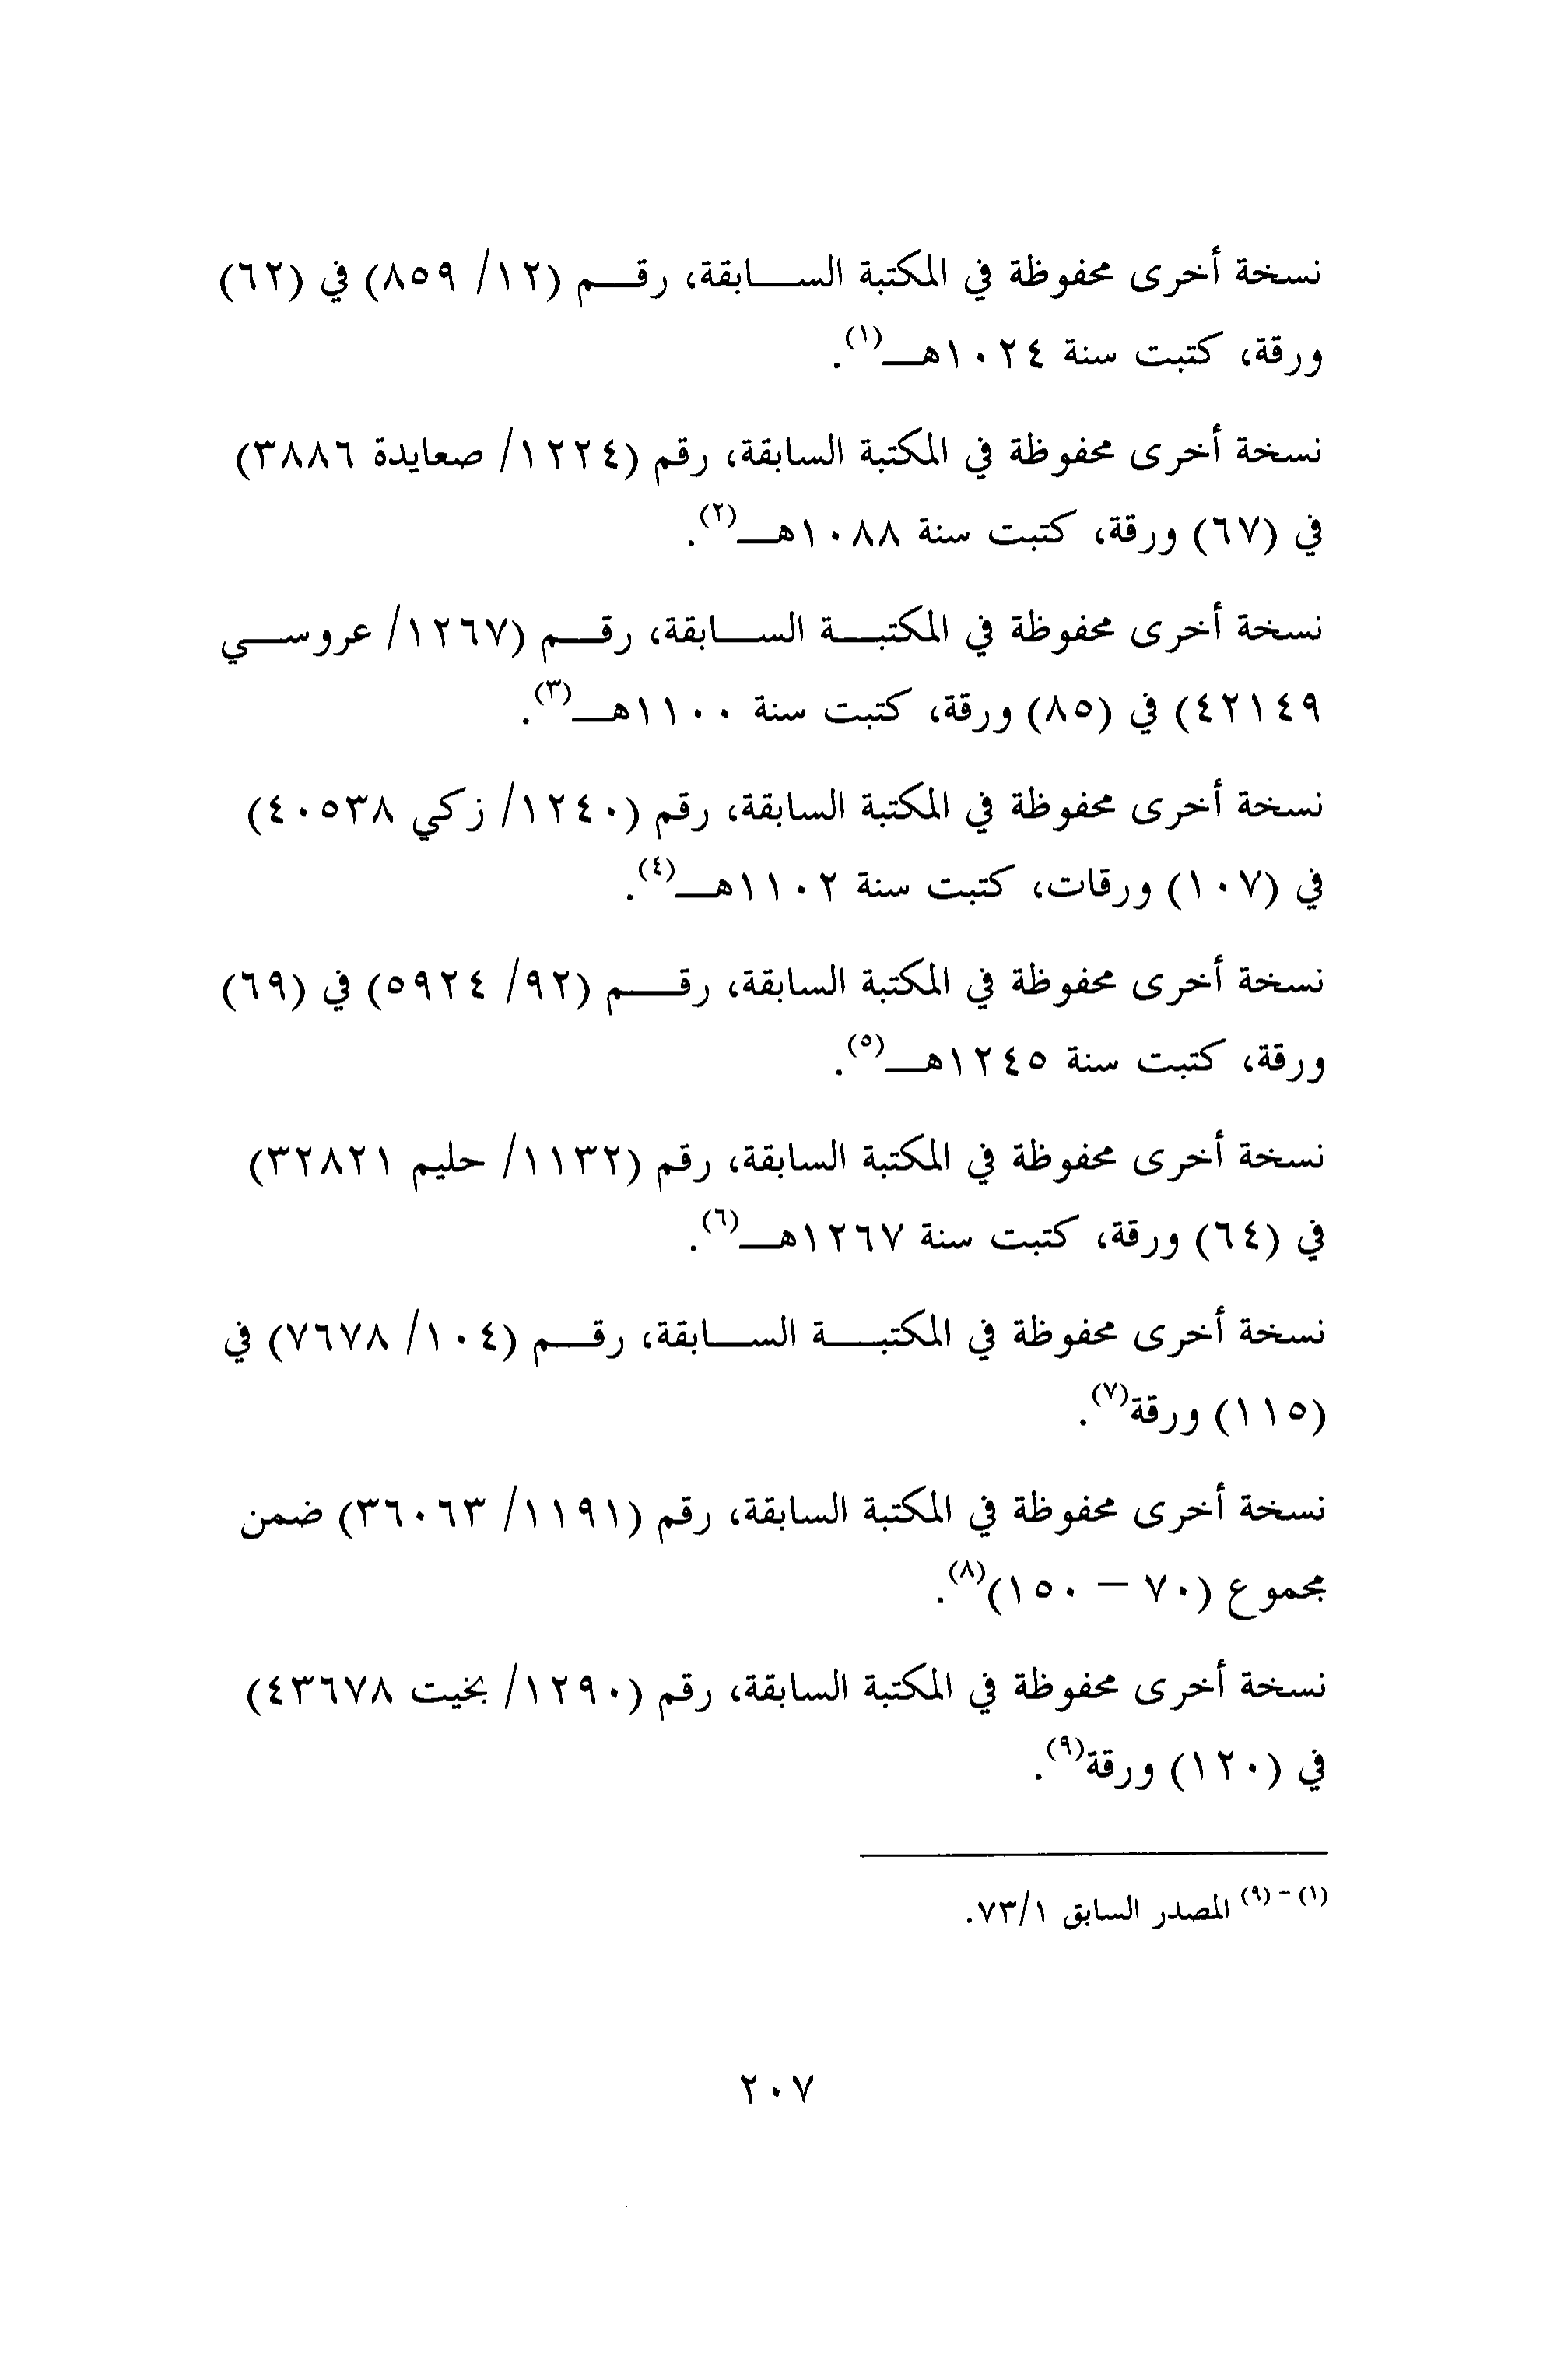 نسخة أخرى محفوظة في المكتبة الســـابقة، رقـــم (١٢/ ٨٥٩) في (٦٢)
ورقة، كتبت سنة ١٠٢٤هـ(١).
نسخة أخرى محفوظة في المكتبة السابقة، رقم (١٢٢٤/ صعايدة ٣٨٨٦)
في (٦٧) ورقة، كتبت سنة ١٠٨٨هـ(٢).
نسخة أخرى محفوظة في المكتبـــة الســـابقة، رقـــم (١٢٦٧/ عروســـي
٤٢١٤٩) في (٨٥) ورقة، كتبت سنة ١١٠٠هـ(٣).
نسخة أخرى محفوظة في المكتبة السابقة، رقم (١٢٤٠/ زكي ٤٠٥٣٨)
في (١٠٧) ورقات، كتبت سنة ١١٠٢هـ(٤).
نسخة أخرى محفوظة في المكتبة السابقة، رقـــم (٩٢/ ٥٩٢٤) في (٦٩)
ورقة، كتبت سنة ١٢٤٥هـ(٥).
نسخة أخرى محفوظة في المكتبة السابقة، رقم (١١٣٢/ حليم ٣٢٨٢١)
في (٦٤) ورقة، كتبت سنة ١٢٦٧هـ(٦).
نسخة أخرى محفوظة في المكتبـــة الســـابقة، رقـــم (١٠٤/ ٧٦٧٨) في
(١١٥) ورقة(٧).
نسخة أخرى محفوظة في المكتبة السابقة، رقم (١١٩١/ ٣٦٠٦٣) ضمن
مجموع (٧٠ – ١٥٠)(٨).
نسخة أخرى محفوظة في المكتبة السابقة، رقم (١٢٩٠/ بخيت ٤٣٦٧٨)
في (١٢٠) ورقة(٩).
(١) – (٩) المصدر السابق ٧٣/١.
٢٠٧